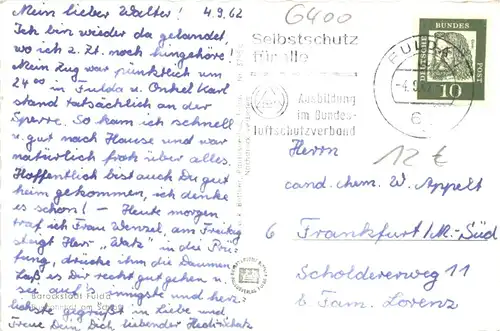 Mein lieber Walter! 4.9.62
Ich bin wieder da gelandet,
wo ich z. Zt. noch hingehöre!
Mein Zug war pünktlich um
24⁰⁰ in Fulda u. Onkel Karl
stand tatsächlich an der
Sperre. So kam ich schnell
u. gut nach Hause und war
natürlich froh über alles.
Hoffentlich bist auch Du gut
heim gekommen, ich denke
es schon! – Heute morgen
traf ich Frau Wenzel, am Freitag
steigt Herr "Watz" in die Prü-
fung, drücke ihm die Daumen.
Laß es Dir recht gut gehen u.
sei auf's innigste und herz-
lichste gegrüßt in Liebe und
Treue Dein Dich liebender
Barockstadt Fulda
am Schloß
6400
Selbstschutz
für alle
Ausbildung
im Bundes-
luftschutzverband
FULDA
-4.9.
DEUTSCHE
BUNDES
POST
10
12 €
Herrn
cand. chem. W. Appelt
6 Frankfurt/M.-Süd
Scholdererweg 11
b/ Fam. Lorenz